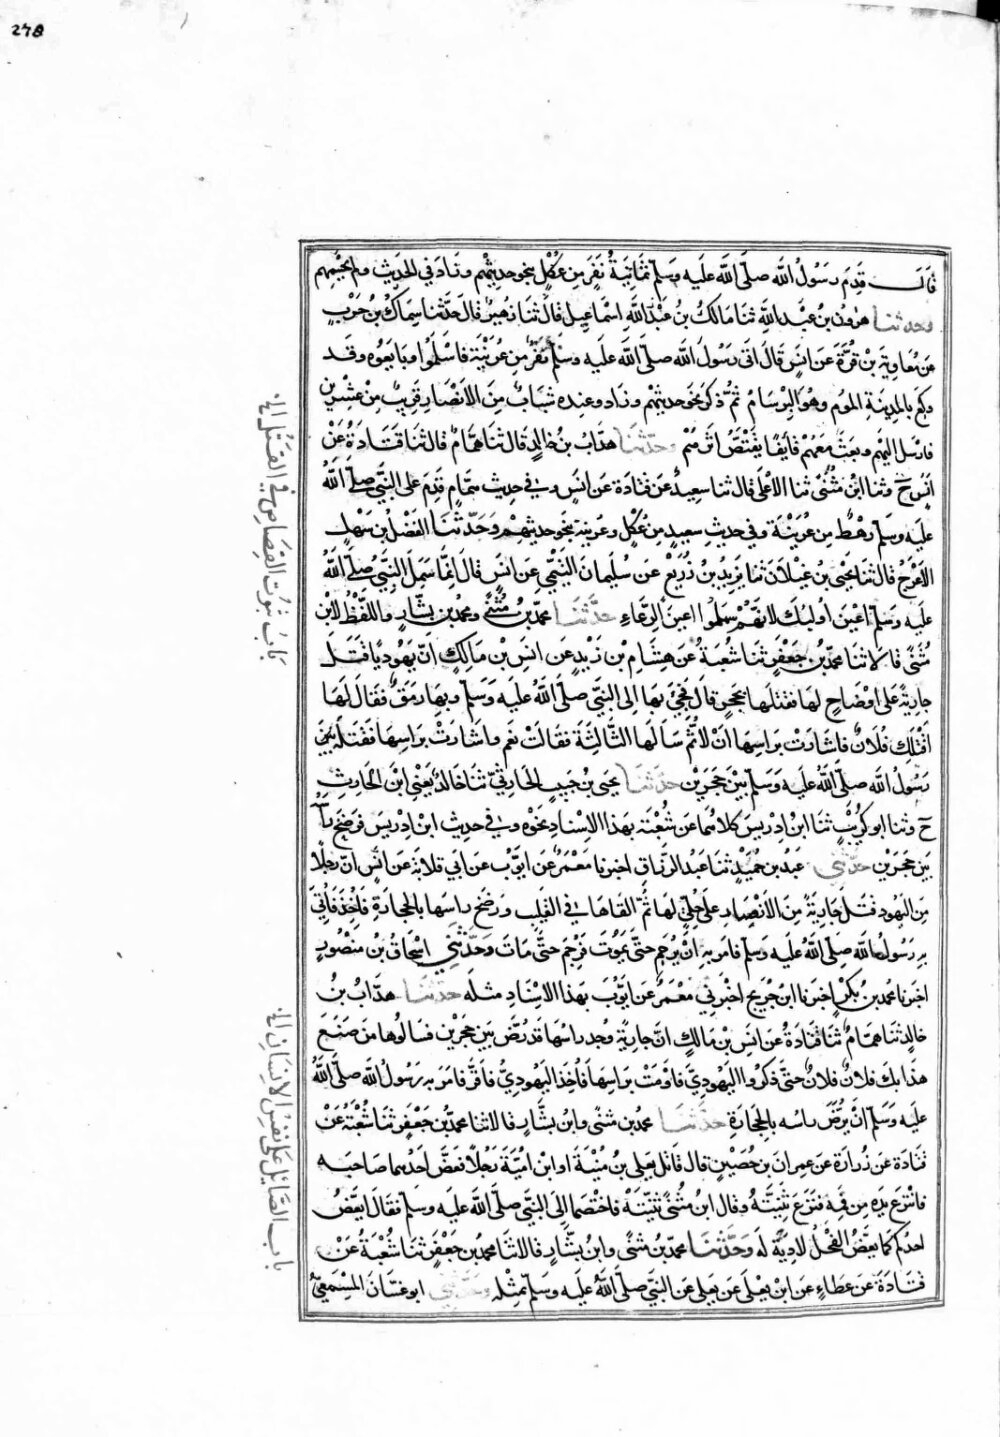 278
قالـــ قدم رسول الله صلى الله عليه وسلم ثمانية نفر من عكل بنحو حديثهم وزاد في الحديث ولم يحسمهم
وحدثنا هرون بن عبد الله ثنا مالك بن عبد الله اسماعيل قال ثنا زهير قال حدثنا سماك بن حرب
عن معاوية بن قرة عن انس قال اتى رسول الله صلى الله عليه وسلم نفر من عرينة فاسلموا وبايعوه وقد
وقع بالمدينة الموم وهو البرسام ثم ذكر نحو حديثهم وزاد وعنده شباب من الانصار قريب من عشرين
فارسل اليهم وبعث معهم قايفا يقتص اثرهم حدثنا هداب بن خالد قال ثنا همام قال ثنا قتادة عن
انس ح وثنا ابن مثنى ثنا الاعلى قال ثنا سعيد عن قتادة عن انس وفي حديث همام قدم على النبي صلى الله
عليه وسلم رهط من عرينة وفي حديث سعيد من عكل وعرينة بنحو حديثهم وحدثنا الفضل بن سهل
الاعرج قال ثنا يحيى بن غيلان ثنا يزيد بن زريع عن سليمان التيمي عن انس قال انما سمل النبي صلى الله
عليه وسلم اعين اوليك لانهم سملوا اعين الرعاء حدثنا محمد بن مثنى ومحمد بن بشار واللفظ لابن
مثنى قالا ثنا محمد بن جعفر ثنا شعبة عن هشام بن زيد عن انس بن مالك ان يهوديا قتل
جارية على اوضاح لها فقتلها بحجر قال فجيء بها الى النبي صلى الله عليه وسلم وبها رمق فقال لها
اقتلك فلان فاشارت براسها ان لا ثم سالها الثالثة فقالت نعم واشارت براسها فقتله
رسول الله صلى الله عليه وسلم بين حجرين حدثنا يحيى بن حبيب الحارثي ثنا خالد يعني ابن الحارث
ح وثنا ابو كريب ثنا ابن ادريس كلاهما عن شعبة بهذا الاسناد نحوه وفي حديث ابن ادريس فرضخ راسه
بين حجرين حدثني عبد بن حميد ثنا عبد الرزاق اخبرنا معمر عن ايوب عن ابي قلابة عن انس ان رجلا
من اليهود قتل جارية من الانصار على حلي لها ثم القاها في القليب ورضخ راسها بالحجارة فاخذ فاتي
به رسول الله صلى الله عليه وسلم فامر به ان يرجم حتى يموت فرجم حتى مات وحدثني اسحاق بن منصور
اخبرنا محمد بن بكر اخبرنا ابن جريج اخبرني معمر عن ايوب بهذا الاسناد مثله حدثنا هداب بن
خالد ثنا همام ثنا قتادة عن انس بن مالك ان جارية وجد راسها قد رض بين حجرين فسالوها من صنع
هذا بك فلان فلان حتى ذكروا اليهودي فاومت براسها فاخذ اليهودي فاقر فامر به رسول الله صلى الله
عليه وسلم ان يرض راسه بالحجارة حدثنا محمد بن مثنى وابن بشار قالا ثنا محمد بن جعفر ثنا شعبة عن
قتادة عن زرارة عن عمران بن حصين قال قاتل يعلى بن منية او ابن امية رجلا فعض احدهما صاحبه
فانتزع يده من فيه فنزع ثنيته وقال ابن مثنى ثنيتيه فاختصما الى النبي صلى الله عليه وسلم فقال ايعض
احدكم كما يعض الفحل لا دية له وحدثنا محمد بن مثنى وابن بشار قالا ثنا محمد بن جعفر ثنا شعبة عن
قتادة عن عطاء عن ابن يعلى عن يعلى عن النبي صلى الله عليه وسلم بمثله وحدثني ابو غسان المسمعي
باب ثبوت القصاص في القتل الخ
باب الصائل على نفس الانسان الخ